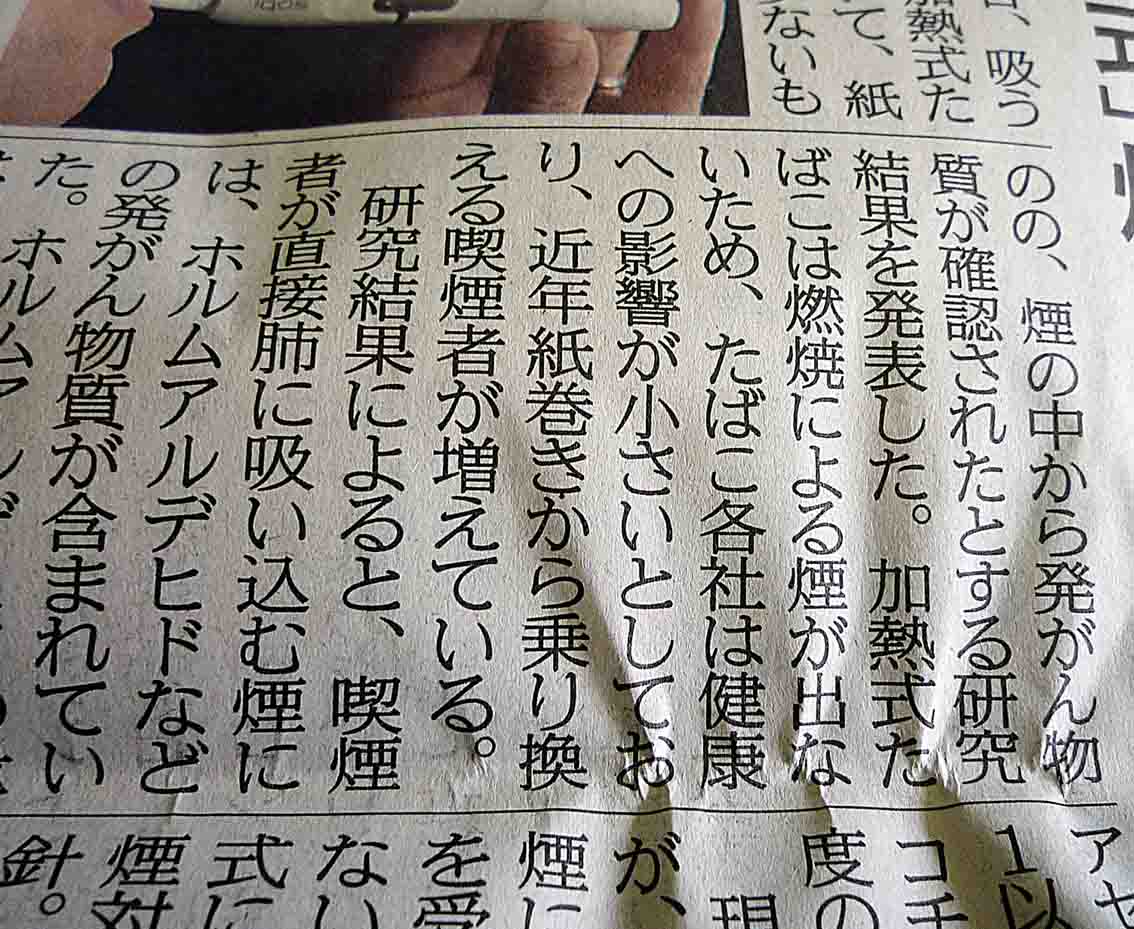 、吸う
加熱式た
て、紙
ないも
のの、煙の中から発がん物
質が確認されたとする研究
結果を発表した。加熱式た
ばこは燃焼による煙が出な
いため、たばこ各社は健康
への影響が小さいとしてお
り、近年紙巻きから乗り換
える喫煙者が増えている。
研究結果によると、喫煙
者が直接肺に吸い込む煙に
は、ホルムアルデヒドなど
の発がん物質が含まれてい
た。ホルムアルデ
アセ
1以
コチ
度の
現
が、
煙に
を受
ない
式に
煙対
針。